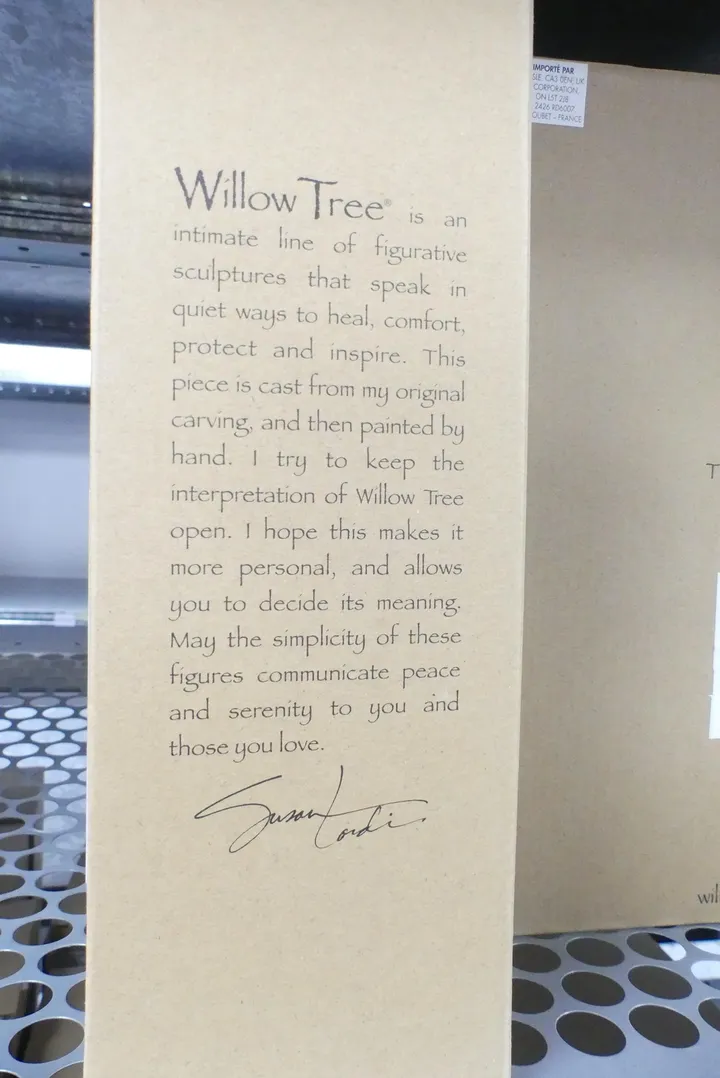 Willow Tree® is an
intimate line of figurative
sculptures that speak in
quiet ways to heal, comfort,
protect and inspire. This
piece is cast from my original
carving, and then painted by
hand. I try to keep the
interpretation of Willow Tree
open. I hope this makes it
more personal, and allows
you to decide its meaning.
May the simplicity of these
figures communicate peace
and serenity to you and
those you love.
Susan Lordi
IMPORTÉ PAR
CORPORATION,
ON L5T 2J8
- FRANCE
T
wil